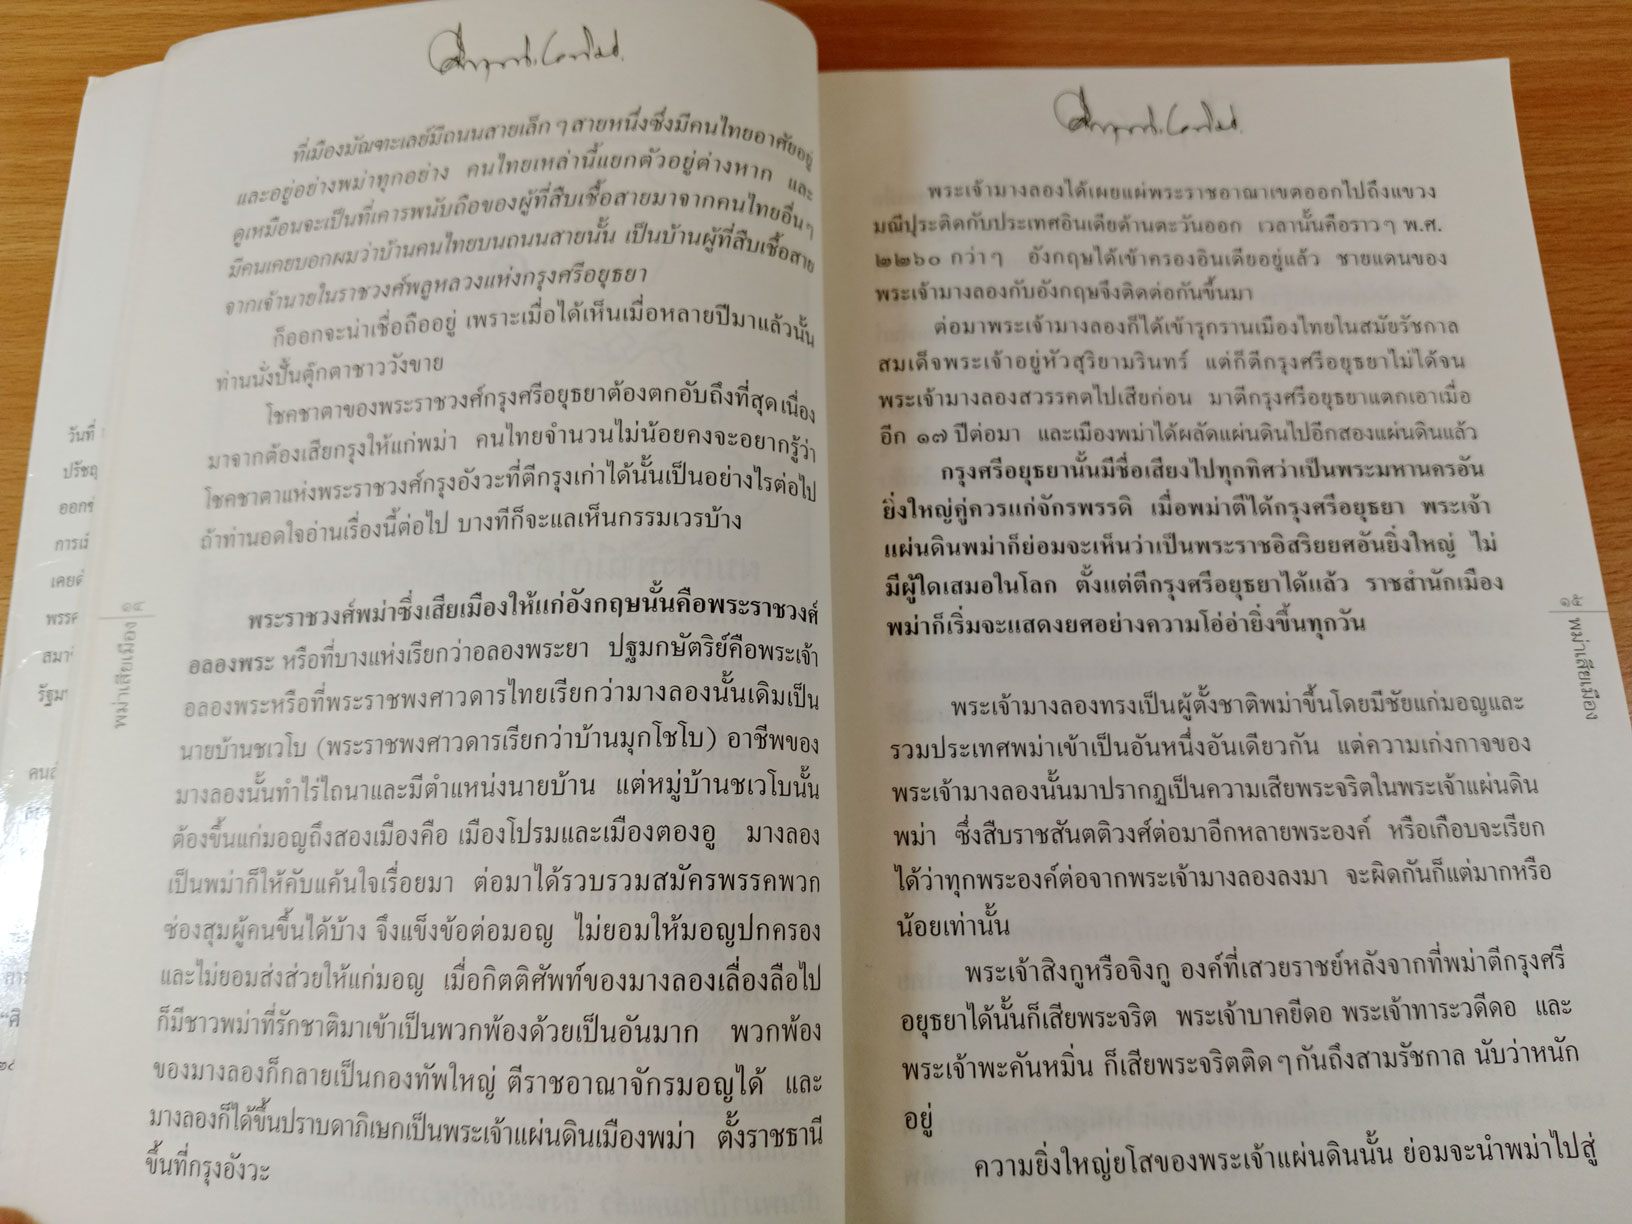 ที่เมืองมัณฑะเลย์มีถนนสายเล็ก ๆ สายหนึ่งซึ่งมีคนไทยอาศัยอยู่
และอยู่อย่างพม่าทุกอย่าง คนไทยเหล่านี้แยกตัวอยู่ต่างหาก และ
ดูเหมือนจะเป็นที่เคารพนับถือของผู้ที่สืบเชื้อสายมาจากคนไทยอื่นๆ
มีคนเคยบอกผมว่าบ้านคนไทยบนถนนสายนั้น เป็นบ้านผู้ที่สืบเชื้อสาย
จากเจ้านายในราชวงศ์พลูหลวงแห่งกรุงศรีอยุธยา
ก็ออกจะน่าเชื่อถืออยู่ เพราะเมื่อได้เห็นเมื่อหลายปีมาแล้วนั้น
ท่านนั่งปั้นตุ๊กตาชาววังขาย
โชคชาตาของพระราชวงศ์กรุงศรีอยุธยาต้องตกอับถึงที่สุด เนื่อง
มาจากต้องเสียกรุงให้แก่พม่า คนไทยจำนวนไม่น้อยคงจะอยากรู้ว่า
โชคชาตาแห่งพระราชวงศ์กรุงอังวะที่ตีกรุงเก่าได้นั้นเป็นอย่างไรต่อไป
ถ้าท่านอดใจอ่านเรื่องนี้ต่อไป บางทีก็จะแลเห็นกรรมเวรบ้าง
พระราชวงศ์พม่าซึ่งเสียเมืองให้แก่อังกฤษนั้นคือพระราชวงศ์
อลองพระ หรือที่บางแห่งเรียกว่าอลองพระยา ปฐมกษัตริย์คือพระเจ้า
อลองพระหรือที่พระราชพงศาวดารไทยเรียกว่ามางลองนั้นเดิมเป็น
นายบ้านชเวโบ (พระราชพงศาวดารเรียกว่าบ้านมุกโชโบ) อาชีพของ
มางลองนั้นทำไร่ไถนาและมีตำแหน่งนายบ้าน แต่หมู่บ้านชเวโบนั้น
ต้องขึ้นแก่มอญถึงสองเมืองคือ เมืองโปรมและเมืองตองอู มางลอง
เป็นพม่าก็ให้คับแค้นใจเรื่อยมา ต่อมาได้รวบรวมสมัครพรรคพวก
ซ่องสุมผู้คนขึ้นได้บ้าง จึงแข็งข้อต่อมอญ ไม่ยอมให้มอญปกครอง
และไม่ยอมส่งส่วยให้แก่มอญ เมื่อกิตติศัพท์ของมางลองเลื่องลือไป
ก็มีชาวพม่าที่รักชาติมาเข้าเป็นพวกพ้องด้วยเป็นอันมาก พวกพ้อง
ของมางลองก็กลายเป็นกองทัพใหญ่ ตีราชอาณาจักรมอญได้ และ
มางลองก็ได้ขึ้นปราบดาภิเษกเป็นพระเจ้าแผ่นดินเมืองพม่า ตั้งราชธานี
ขึ้นที่กรุงอังวะ
๑๔
พม่าเสียเมือง
วันที่
พระเจ้ามางลองได้เผยแผ่พระราชอาณาเขตออกไปถึงแขวง
มณีปุระติดกับประเทศอินเดียด้านตะวันออก เวลานั้นคือราว ๆ พ.ศ.
๒๒๖๐ กว่า ๆ อังกฤษได้เข้าครองอินเดียอยู่แล้ว ชายแดนของ
พระเจ้ามางลองกับอังกฤษจึงติดต่อกันขึ้นมา
ต่อมาพระเจ้ามางลองก็ได้เข้ารุกรานเมืองไทยในสมัยรัชกาล
สมเด็จพระเจ้าอยู่หัวสุริยามรินทร์ แต่ก็ตีกรุงศรีอยุธยาไม่ได้จน
พระเจ้ามางลองสวรรคตไปเสียก่อน มาตีกรุงศรีอยุธยาแตกเอาเมื่อ
อีก ๑๗ ปีต่อมา และเมืองพม่าได้ผลัดแผ่นดินไปอีกสองแผ่นดินแล้ว
กรุงศรีอยุธยานั้นมีชื่อเสียงไปทุกทิศว่าเป็นพระมหานครอัน
ยิ่งใหญ่คู่ควรแก่จักรพรรดิ เมื่อพม่าตีได้กรุงศรีอยุธยา พระเจ้า
แผ่นดินพม่าก็ย่อมจะเห็นว่าเป็นพระราชอิสริยยศอันยิ่งใหญ่ ไม่
มีผู้ใดเสมอในโลก ตั้งแต่ตีกรุงศรีอยุธยาได้แล้ว ราชสำนักเมือง
พม่าก็เริ่มจะแสดงยศอย่างความโอ่อ่ายิ่งขึ้นทุกวัน
พระเจ้ามางลองทรงเป็นผู้ตั้งชาติพม่าขึ้นโดยมีชัยแก่มอญและ
รวมประเทศพม่าเข้าเป็นอันหนึ่งอันเดียวกัน แต่ความเก่งกาจของ
พระเจ้ามางลองนั้นมาปรากฏเป็นความเสียพระจริตในพระเจ้าแผ่นดิน
พม่า ซึ่งสืบราชสันตติวงศ์ต่อมาอีกหลายพระองค์ หรือเกือบจะเรียก
ได้ว่าทุกพระองค์ต่อจากพระเจ้ามางลองลงมา จะผิดกันก็แต่มากหรือ
น้อยเท่านั้น
พระเจ้าสิงกูหรือจิงกู องค์ที่เสวยราชย์หลังจากที่พม่าตีกรุงศรี
อยุธยาได้นั้นก็เสียพระจริต พระเจ้าบาคยีดอ พระเจ้าทาระวดีดอ และ
พระเจ้าพะคันหมิ่น ก็เสียพระจริตติด ๆ กันถึงสามรัชกาล นับว่าหนัก
อยู่
ความยิ่งใหญ่ยโสของพระเจ้าแผ่นดินนั้น ย่อมจะนำพม่าไปสู่
๑๕
พม่าเสียเมือง